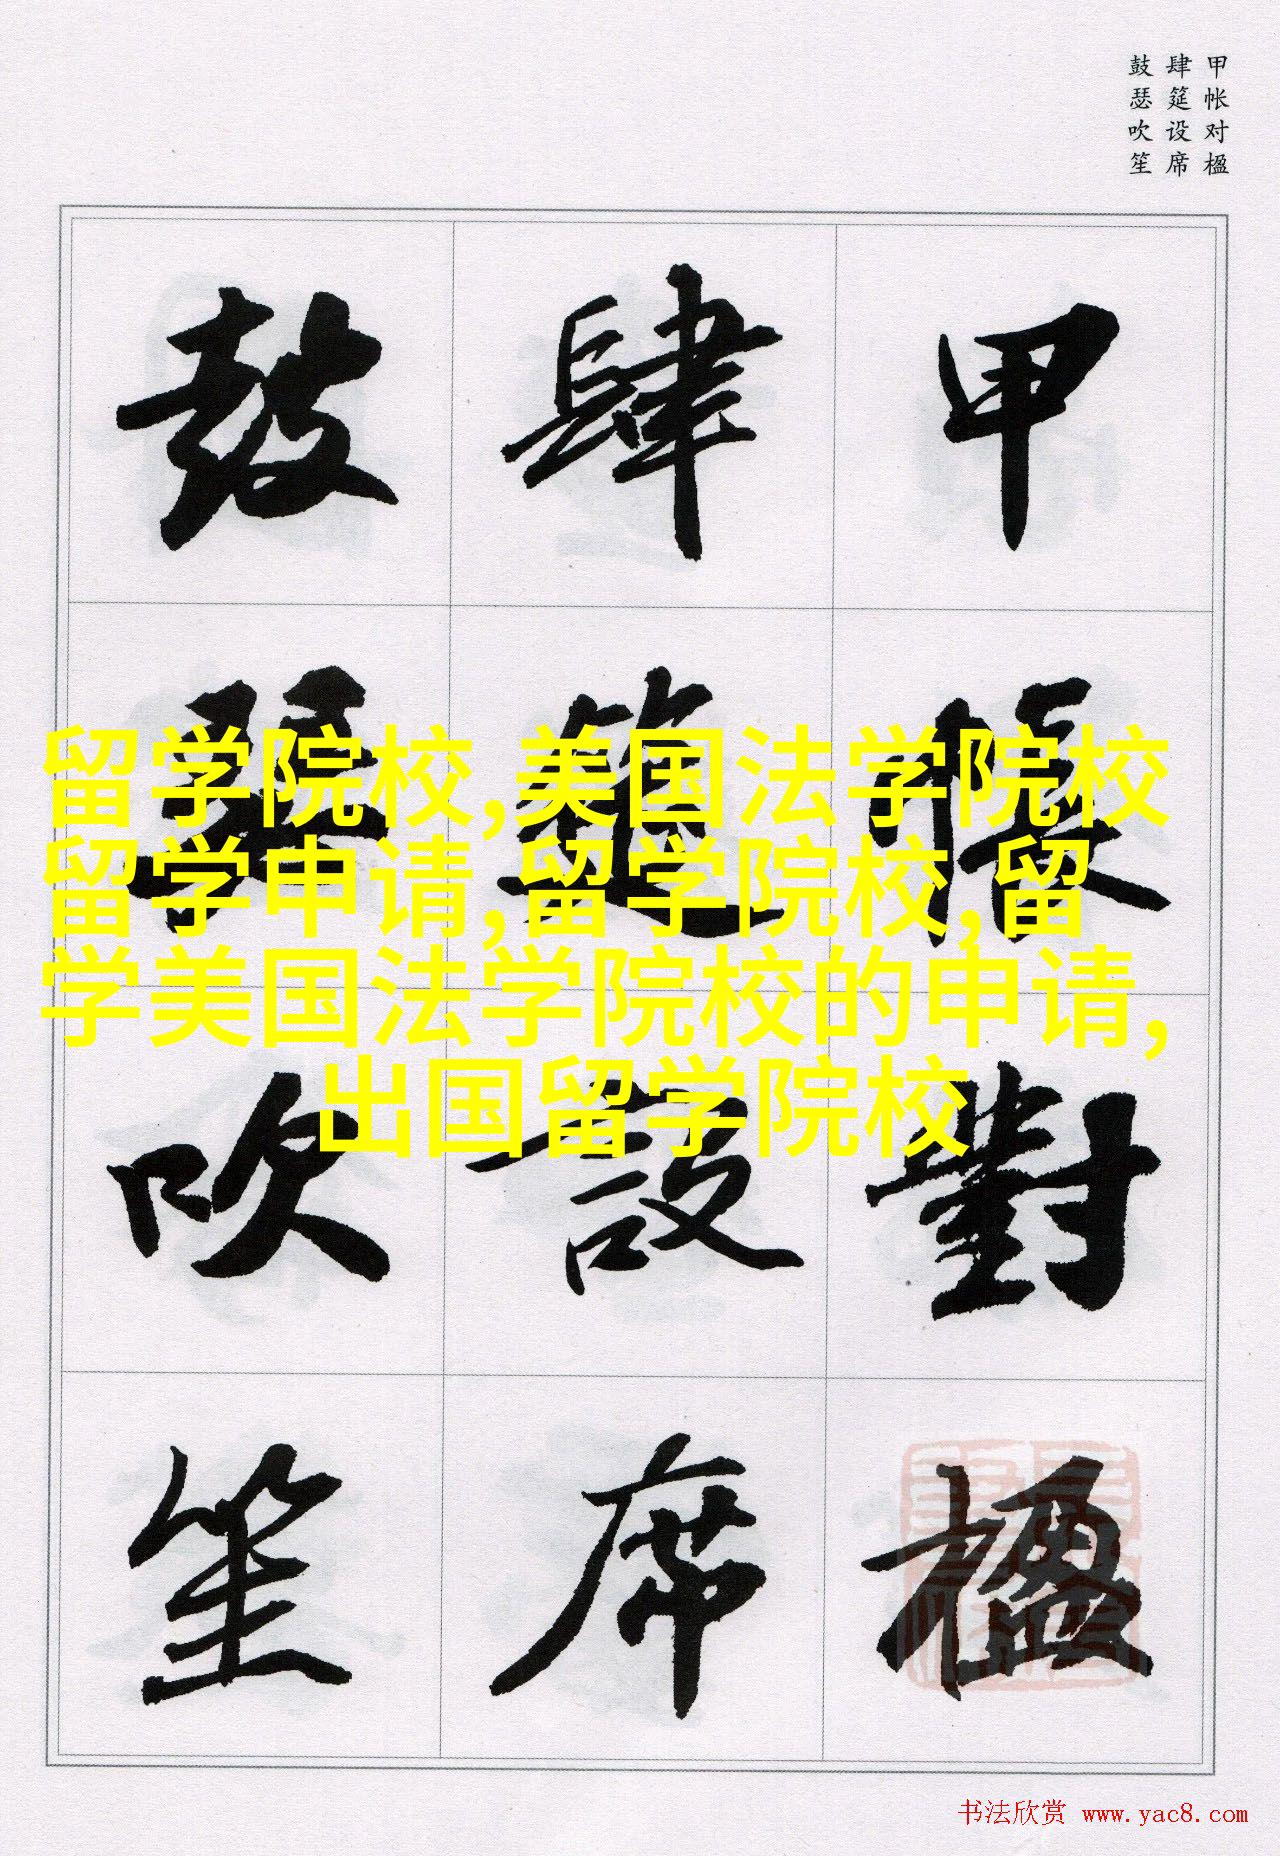 甲帐对楹
肆筵设席
鼓瑟吹笙
甲帳對楹
肆筵設席
鼓瑟吹笙
留学院校,美国法学院校
留学申请,留学院校,留
学美国法学院校的申请,
出国留学院校
书法欣赏 www.yac8.com